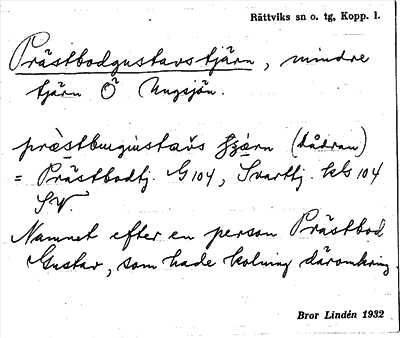 Rättviks sn o. tg, Kopp. l.
Prästbodgustavstjärn, mindre
tjärn Ö Ungsjön.
(bådran)
= Prästbodtj. G 104, Svarttj. kbs 104
SV.
Namnet efter en person Prästbod
Gustav, som hade kolning däromkring.
Bror Lindén 1932